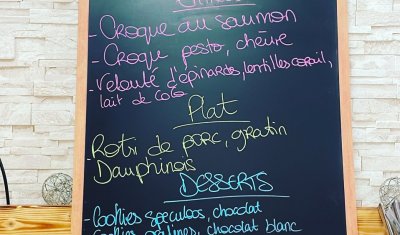 - Croque au saumon
- Croque pesto, chèvre
- Velouté d'épinards, lentilles corail,
lait de coco
Plat
- Roti de porc, gratin
Dauphinois
DESSERTS
- Cookies speculoos, chocolat
Cookies pralines, chocolat blanc